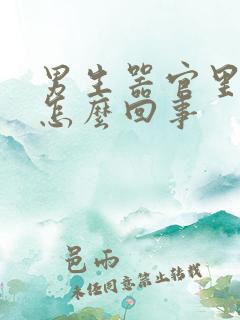 男生器官里
怎麼回事
邑雨
未经同意禁止转载